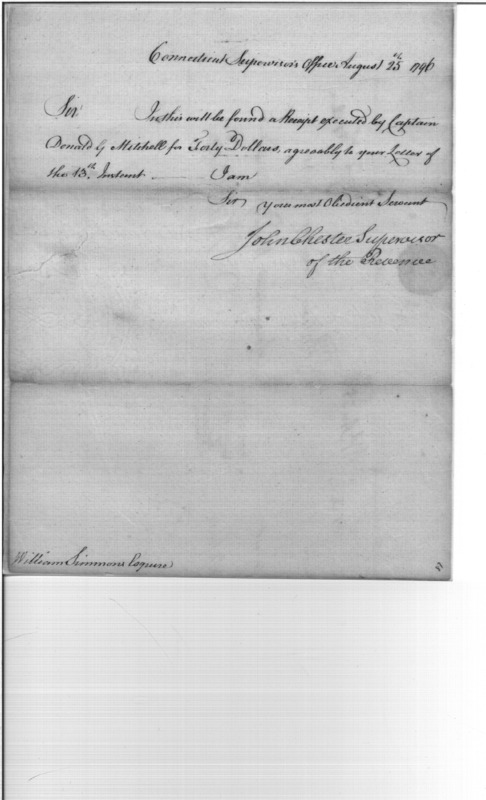 Connecticut Supervisor's Office August 25th 1796
Sir In this will be found a Receipt executed by Captain
Donald G Mitchell for Forty Dollars, agreeably to your Letter of
the 13th Instant. I am
Sir your most Obedient Servant
John Chester Supervisor
of the Revenue
William Simmons Esquire